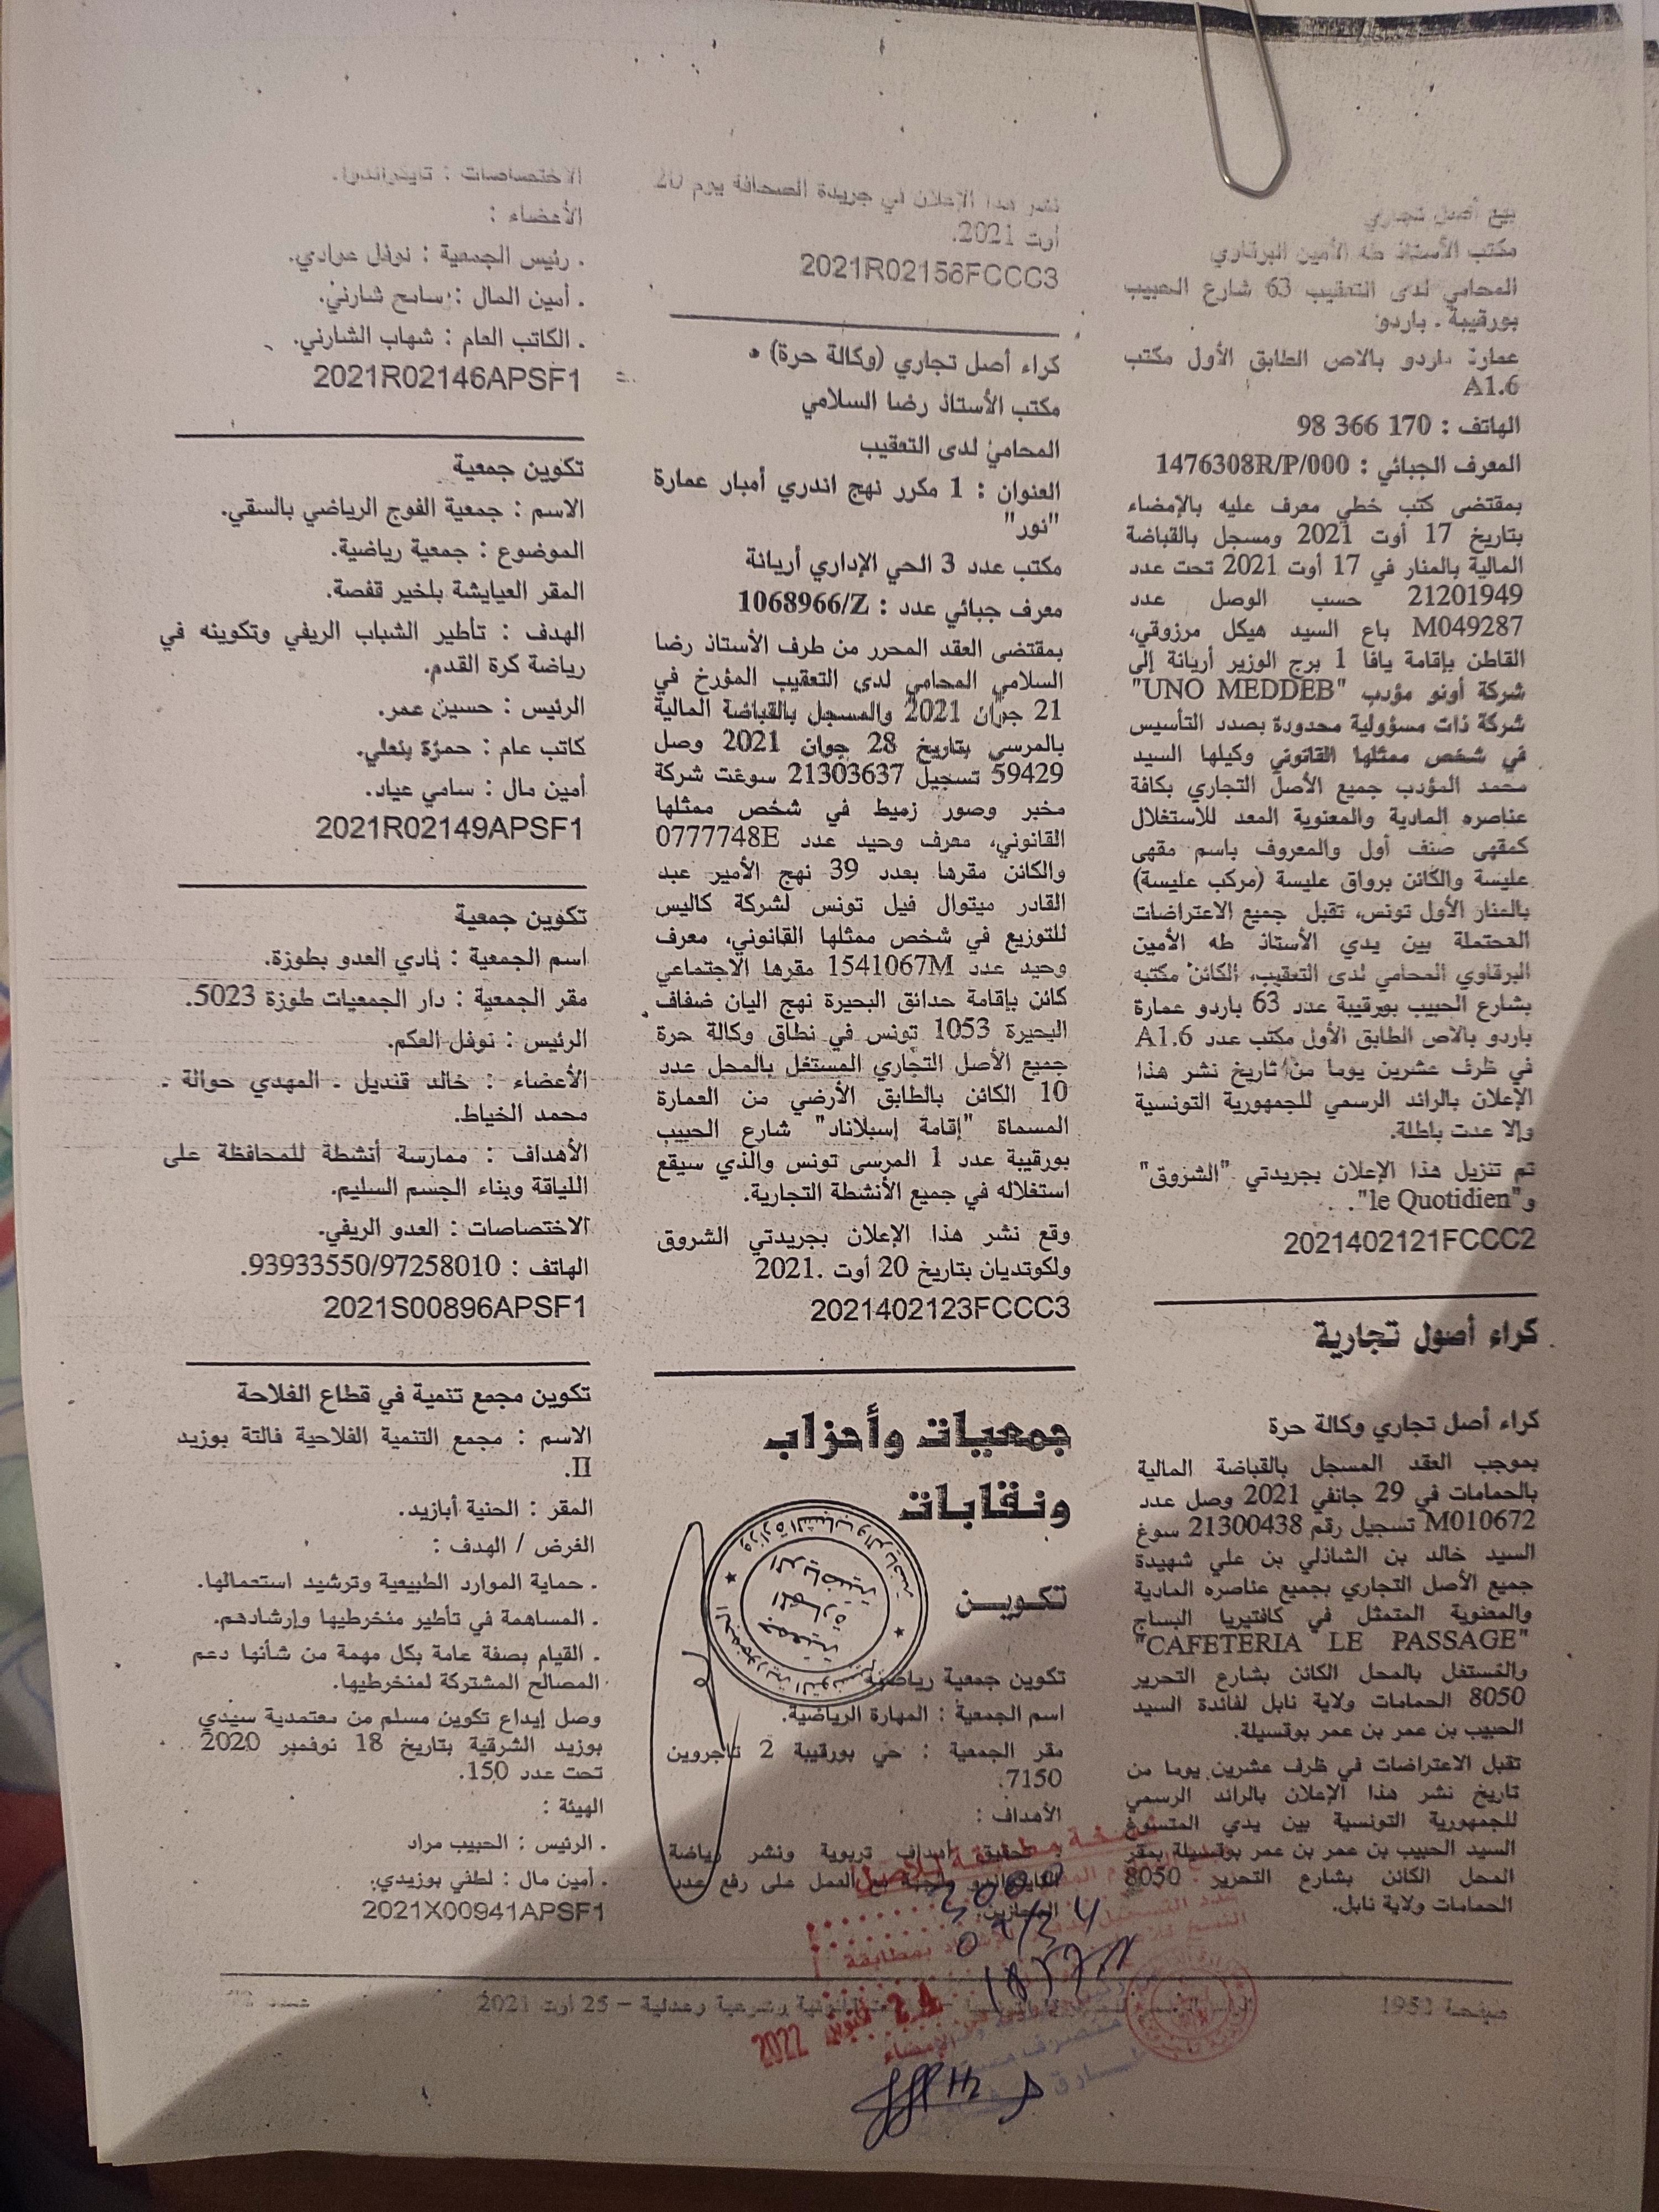 بيع أصل تجاري
مكتب الأستاذ طه الأمين البرقاوي
المحامي لدى التعقيب 63 شارع الحبيب
بورقيبة . باردو
عمارة باردو بالاص الطابق الأول مكتب
A1.6
الهاتف : 170 366 98
المعرف الجبائي : 1476308R/P/000
بمقتضى كتب خطي معرف عليه بالإمضاء
بتاريخ 17 أوت 2021 ومسجل بالقباضة
المالية بالمنار في 17 أوت 2021 تحت عدد
21201949 حسب الوصل عدد
M049287 باع السيد هيكل مرزوقي،
القاطن بإقامة يافا 1 برج الوزير أريانة إلى
شركة أونو مؤدب "UNO MEDDEB"
شركة ذات مسؤولية محدودة بصدد التأسيس
في شخص ممثلها القانوني وكيلها السيد
محمد المؤدب جميع الأصل التجاري بكافة
عناصره المادية والمعنوية المعد للاستغلال
كمقهى صنف أول والمعروف باسم مقهى
عليسة والكائن برواق عليسة (مركب عليسة)
بالمنار الأول تونس، تقبل جميع الاعتراضات
المحتملة بين يدي الأستاذ طه الأمين
البرقاوي المحامي لدى التعقيب، الكائن مكتبه
بشارع الحبيب بورقيبة عدد 63 باردو عمارة
باردو بالاص الطابق الأول مكتب عدد A1.6
في ظرف عشرين يوما من تاريخ نشر هذا
الإعلان بالرائد الرسمي للجمهورية التونسية
وإلا عدت باطلة.
تم تنزيل هذا الإعلان بجريدتي "الشروق"
و"le Quotidien".
2021402121FCCC2
كراء أصول تجارية
كراء أصل تجاري وكالة حرة
بموجب العقد المسجل بالقباضة المالية
بالحمامات في 29 جانفي 2021 وصل عدد
M010672 تسجيل رقم 21300438 سوغ
السيد خالد بن الشاذلي بن علي شهيدة
جميع الأصل التجاري بجميع عناصره المادية
والمعنوية المتمثل في كافتيريا البساج
"CAFETERIA LE PASSAGE"
والمستغل بالمحل الكائن بشارع التحرير
8050 الحمامات ولاية نابل لفائدة السيد
الحبيب بن عمر بن عمر بوقسيلة.
تقبل الاعتراضات في ظرف عشرين يوما من
تاريخ نشر هذا الإعلان بالرائد الرسمي
للجمهورية التونسية بين يدي المتسوغ
السيد الحبيب بن عمر بن عمر بوقسيلة بمقر
المحل الكائن بشارع التحرير 8050
الحمامات ولاية نابل.
نشر هذا الإعلان في جريدة الصحافة يوم 20
أوت 2021.
2021R02156FCCC3
كراء أصل تجاري (وكالة حرة)
مكتب الأستاذ رضا السلامي
المحامي لدى التعقيب
العنوان : 1 مكرر نهج اندري أمبار عمارة
"نور"
مكتب عدد 3 الحي الإداري أريانة
معرف جبائي عدد : 1068966/Z
بمقتضى العقد المحرر من طرف الأستاذ رضا
السلامي المحامي لدى التعقيب المؤرخ في
21 جوان 2021 والمسجل بالقباضة المالية
بالمرسى بتاريخ 28 جوان 2021 وصل
59429 تسجيل 21303637 سوغت شركة
مخبر وصور زميط في شخص ممثلها
القانوني، معرف وحيد عدد 0777748E
والكائن مقرها بعدد 39 نهج الأمير عبد
القادر ميتوال فيل تونس لشركة كاليس
للتوزيع في شخص ممثلها القانوني، معرف
وحيد عدد 1541067M مقرها الاجتماعي
كائن بإقامة حدائق البحيرة نهج اليان ضفاف
البحيرة 1053 تونس في نطاق وكالة حرة
جميع الأصل التجاري المستغل بالمحل عدد
10 الكائن بالطابق الأرضي من العمارة
المسماة "إقامة إسبلاناد" شارع الحبيب
بورقيبة عدد 1 المرسى تونس والذي سيقع
استغلاله في جميع الأنشطة التجارية.
وقع نشر هذا الإعلان بجريدتي الشروق
ولكوتديان بتاريخ 20 أوت .2021
2021402123FCCC3
جمعيات وأحزاب
ونقابات
تكويـن
تكوين جمعية رياضية
اسم الجمعية : المهارة الرياضية.
مقر الجمعية : حي بورقيبة 2 تاجروين
7150.
الأهداف :
تحقيق أهداف تربوية ونشر رياضة
العمل على رفع عدد
المجازين.
الاختصاصات : تايكواندو.
الأعضاء :
. رئيس الجمعية : نوفل عوادي.
. أمين المال : سامح شارني.
. الكاتب العام : شهاب الشارني.
2021R02146APSF1
تكوين جمعية
الاسم : جمعية الفوج الرياضي بالسقي.
الموضوع : جمعية رياضية.
المقر العيايشة بلخير قفصة.
الهدف : تأطير الشباب الريفي وتكوينه في
رياضة كرة القدم.
الرئيس : حسين عمر.
كاتب عام : حمزة بنعلي.
أمين مال : سامي عياد.
2021R02149APSF1
تكوين جمعية
اسم الجمعية : نادي العدو بطوزة.
مقر الجمعية : دار الجمعيات طوزة 5023.
الرئيس : نوفل العكم.
الأعضاء : خالد قنديل . المهدي حوالة .
محمد الخياط.
الأهداف : ممارسة أنشطة للمحافظة على
اللياقة وبناء الجسم السليم.
الاختصاصات : العدو الريفي.
الهاتف : 93933550/97258010.
2021S00896APSF1
تكوين مجمع تنمية في قطاع الفلاحة
الاسم : مجمع التنمية الفلاحية فالتة بوزيد
II.
المقر : الحنية أبازيد.
الغرض / الهدف :
. حماية الموارد الطبيعية وترشيد استعمالها.
. المساهمة في تأطير منخرطيها وإرشادهم.
. القيام بصفة عامة بكل مهمة من شأنها دعم
المصالح المشتركة لمنخرطيها.
وصل إيداع تكوين مسلم من معتمدية سيدي
بوزيد الشرقية بتاريخ 18 نوفمبر 2020
تحت عدد 150.
الهيئة :
. الرئيس : الحبيب مراد
. أمين مال : لطفي بوزيدي.
2021X00941APSF1
نسخة مطابقة للأصل
الإمضاء
2022
صفحة 1952
وشرعية وعدلية – 25 أوت 2021